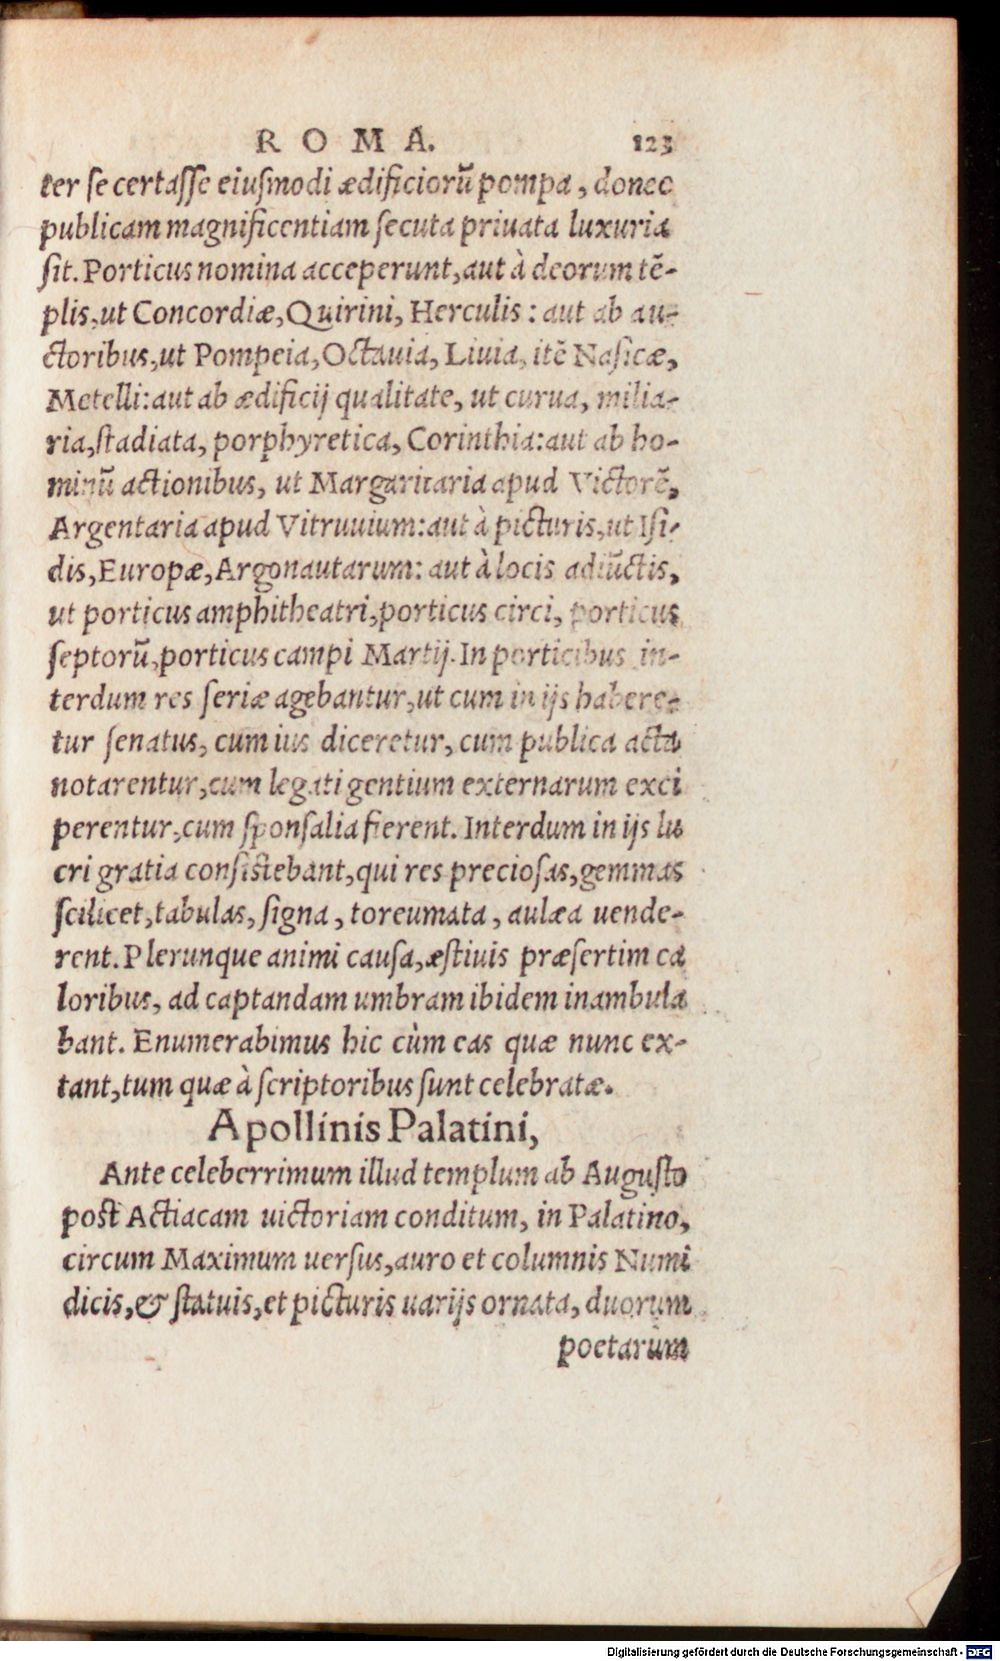 ROMA. 123
ter se certaſſe eiuſmodi ædificiorũ pompa, donec
publicam magnificentiam ſecuta priuata luxuria
ſit. Porticus nomina acceperunt, aut à deorum tẽ-
plis, ut Concordiæ, Quirini, Herculis: aut ab au-
ctoribus, ut Pompeia, Octauia, Liuia, itẽ Naſicæ,
Metelli: aut ab ædificij qualitate, ut curua, milia-
ria, ſtadiata, porphyretica, Corinthia: aut ab ho-
minũ actionibus, ut Margaritaria apud Victorẽ,
Argentaria apud Vitruuium: aut à picturis, ut Iſi-
dis, Europæ, Argonautarum: aut à locis adiũctis,
ut porticus amphitheatri, porticus circi, porticus
ſeptorũ, porticus campi Martij. In porticibus in-
terdum res ſeriæ agebantur, ut cum in ijs habere-
tur ſenatus, cum ius diceretur, cum publica acta
notarentur, cum legati gentium externarum exci
perentur, cum ſponſalia fierent. Interdum in ijs lu
cri gratia conſiſtebant, qui res precioſas, gemmas
ſcilicet, tabulas, ſigna, toreumata, aulæa uende-
rent. Plerunque animi cauſa, æſtiuis præſertim ca
loribus, ad captandam umbram ibidem inambula
bant. Enumerabimus hic cùm eas quæ nunc ex-
tant, tum quæ à ſcriptoribus ſunt celebratæ.
Apollinis Palatini,
Ante celeberrimum illud templum ab Auguſto
poſt Actiacam uictoriam conditum, in Palatino,
circum Maximum uerſus, auro et columnis Numi
dicis, & ſtatuis, et picturis uarijs ornata, duorum
poetarum
Digitalisierung gefördert durch die Deutsche Forschungsgemeinschaft - DFG